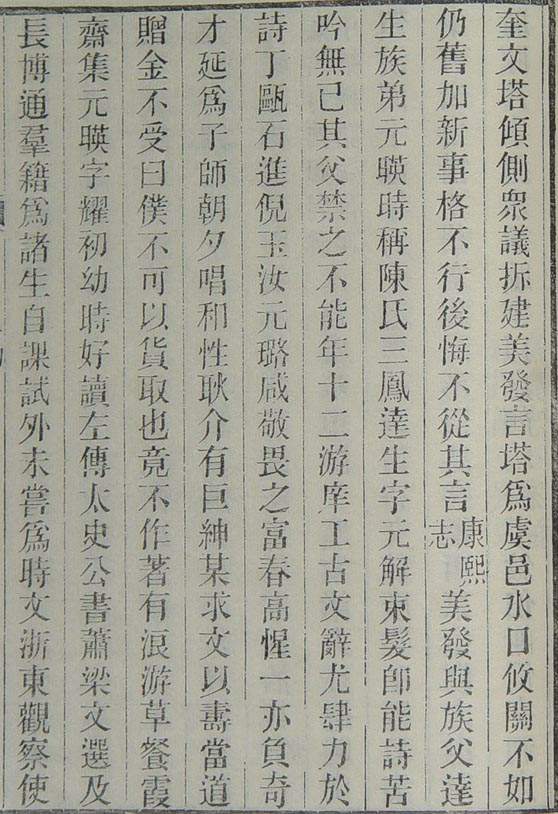 奎文塔傾側衆議拆建美發言塔爲虞邑水口攸關不如
仍舊加新事格不行後悔不從其言康熙志美發與族父達
生族弟元暎時稱陳氏三鳳達生字元解束髮卽能詩苦
吟無已其父禁之不能年十二游庠工古文辭尤肆力於
詩丁甌石進倪玉汝元璐咸敬畏之富春高惺一亦負奇
才延爲子師朝夕唱和性耿介有巨紳某求文以壽當道
贈金不受曰僕不可以貨取也竟不作著有浪游草餐霞
齋集元暎字耀初幼時好讀左傳太史公書蕭梁文選及
長博通羣籍爲諸生自課試外未嘗爲時文浙東觀察使